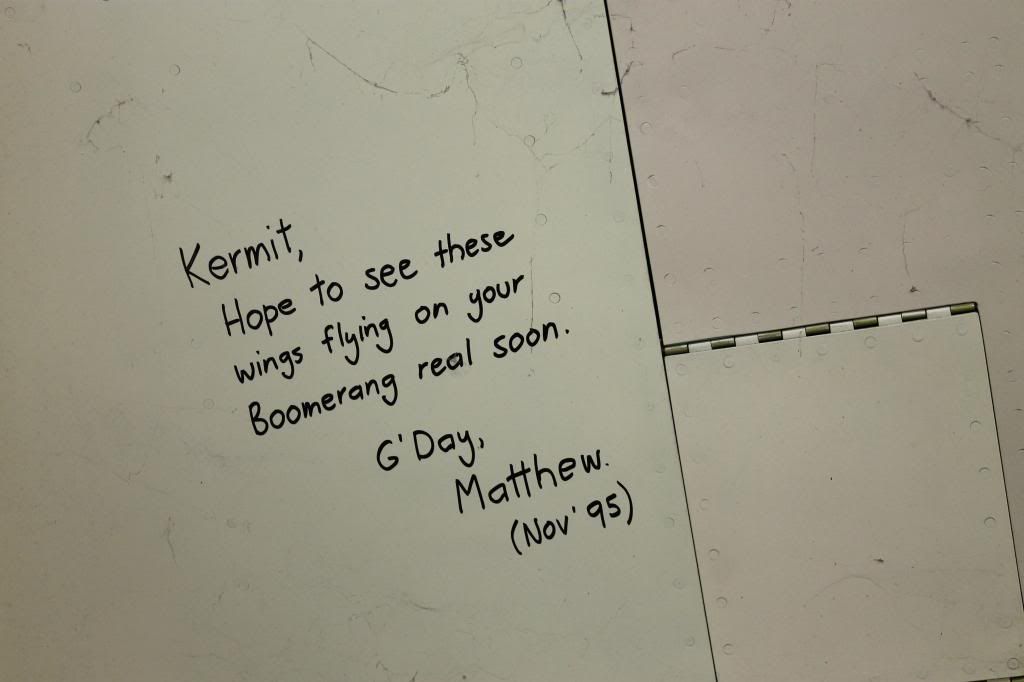 Kermit,
Hope to see these
wings flying on your
Boomerang real soon.
G'Day,
Matthew.
(Nov' 95)